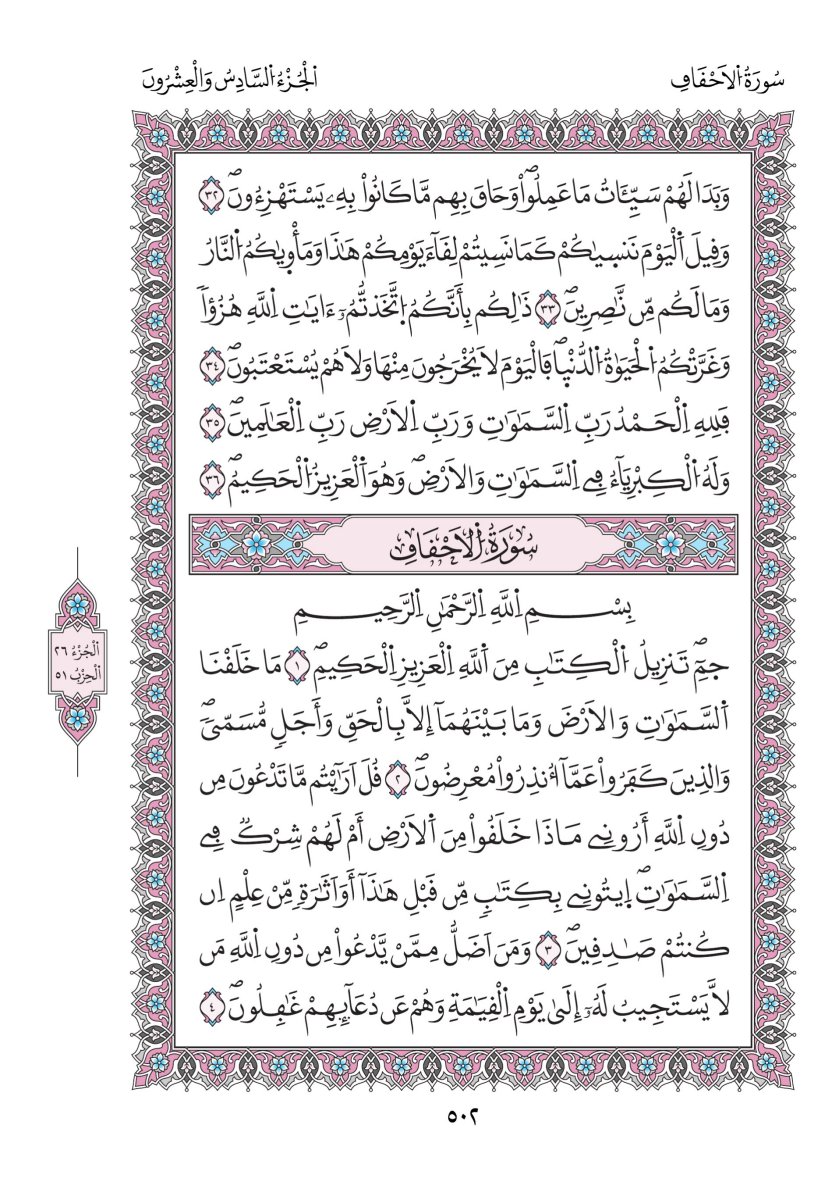 سُورَةُ اُلَاحْقَافِ
اَلْجُزْءُ اُلسَّادِسُ وَالْعِشْرُونَ
وَبَدَا لَهُمْ سَيِّـَٔاتُ مَا عَمِلُواْۖ وَحَاقَ بِهِم مَّا كَانُواْ بِهِۦ يَسْتَهْزِءُونَۖ ٣٢
وَقِيلَ اَ۬لْيَوْمَ نَنسۭيٰكُمْ كَمَا نَسِيتُمْ لِقَآءَ يَوْمِكُمْ هَٰذَا وَمَأْوۭيٰكُمُ اُ۬لنَّارُ
وَمَا لَكُم مِّن نَّٰصِرِينَۖ ٣٣ ذَٰلِكُم بِأَنَّكُمُ اُ۪تَّخَذتُّمُۥٓ ءَايَٰتِ اِ۬للَّهِ هُزُؤاٗ
وَغَرَّتْكُمُ اُ۬لْحَيَوٰةُ اُ۬لدُّنْيۭاۖ فَالْيَوْمَ لَا يُخْرَجُونَ مِنْهَا وَلَا هُمْ يُسْتَعْتَبُونَۖ ٣٤
فَلِلهِ اِ۬لْحَمْدُ رَبِّ اِ۬لسَّمَٰوَٰتِ وَرَبِّ اِ۬لَارْضِ رَبِّ اِ۬لْعَٰلَمِينَۖ ٣٥
وَلَهُ اُ۬لْكِبْرِيَآءُ فِے اِ۬لسَّمَٰوَٰتِ وَالَارْضِۖ وَهُوَ اَ۬لْعَزِيزُ اُ۬لْحَكِيمُۖ ٣٦
سُورَةُ اُلَاحْقَافِ
بِسْمِ اِ۬للَّهِ اِ۬لرَّحْمَٰنِ اِ۬لرَّحِيمِ
حمِٓۖ تَنزِيلُ اُ۬لْكِتَٰبِ مِنَ اَ۬للَّهِ اِ۬لْعَزِيزِ اِ۬لْحَكِيمِۖ ١ مَا خَلَقْنَا
اَ۬لسَّمَٰوَٰتِ وَالَارْضَ وَمَا بَيْنَهُمَآ إِلَّا بِالْحَقِّ وَأَجَلٖ مُّسَمّيٗۖ
وَالذِينَ كَفَرُواْ عَمَّآ أُنذِرُواْ مُعْرِضُونَۖ ٢ قُلَ اَرَٰٓيْتُم مَّا تَدْعُونَ مِن
دُونِ اِ۬للَّهِ أَرُونِے مَاذَا خَلَقُواْ مِنَ اَ۬لَارْضِ أَمْ لَهُمْ شِرْكٞ فِے
اِ۬لسَّمَٰوَٰتِۖ اِ۪يتُونِے بِكِتَٰبٖ مِّن قَبْلِ هَٰذَآ أَوَ اَثَٰرَةٖ مِّنْ عِلْمٍ اِن
كُنتُمْ صَٰدِقِينَۖ ٣ وَمَنَ اَضَلُّ مِمَّنْ يَّدْعُواْ مِن دُونِ اِ۬للَّهِ مَن
لَّا يَسْتَجِيبُ لَهُۥٓ إِلَىٰ يَوْمِ اِ۬لْقِيَٰمَةِ وَهُمْ عَن دُعَآئِهِمْ غَٰفِلُونَۖ ٤
اَلْجُزْءُ ٢٦
اَلْحِزْبُ ٥١
٥٠٢